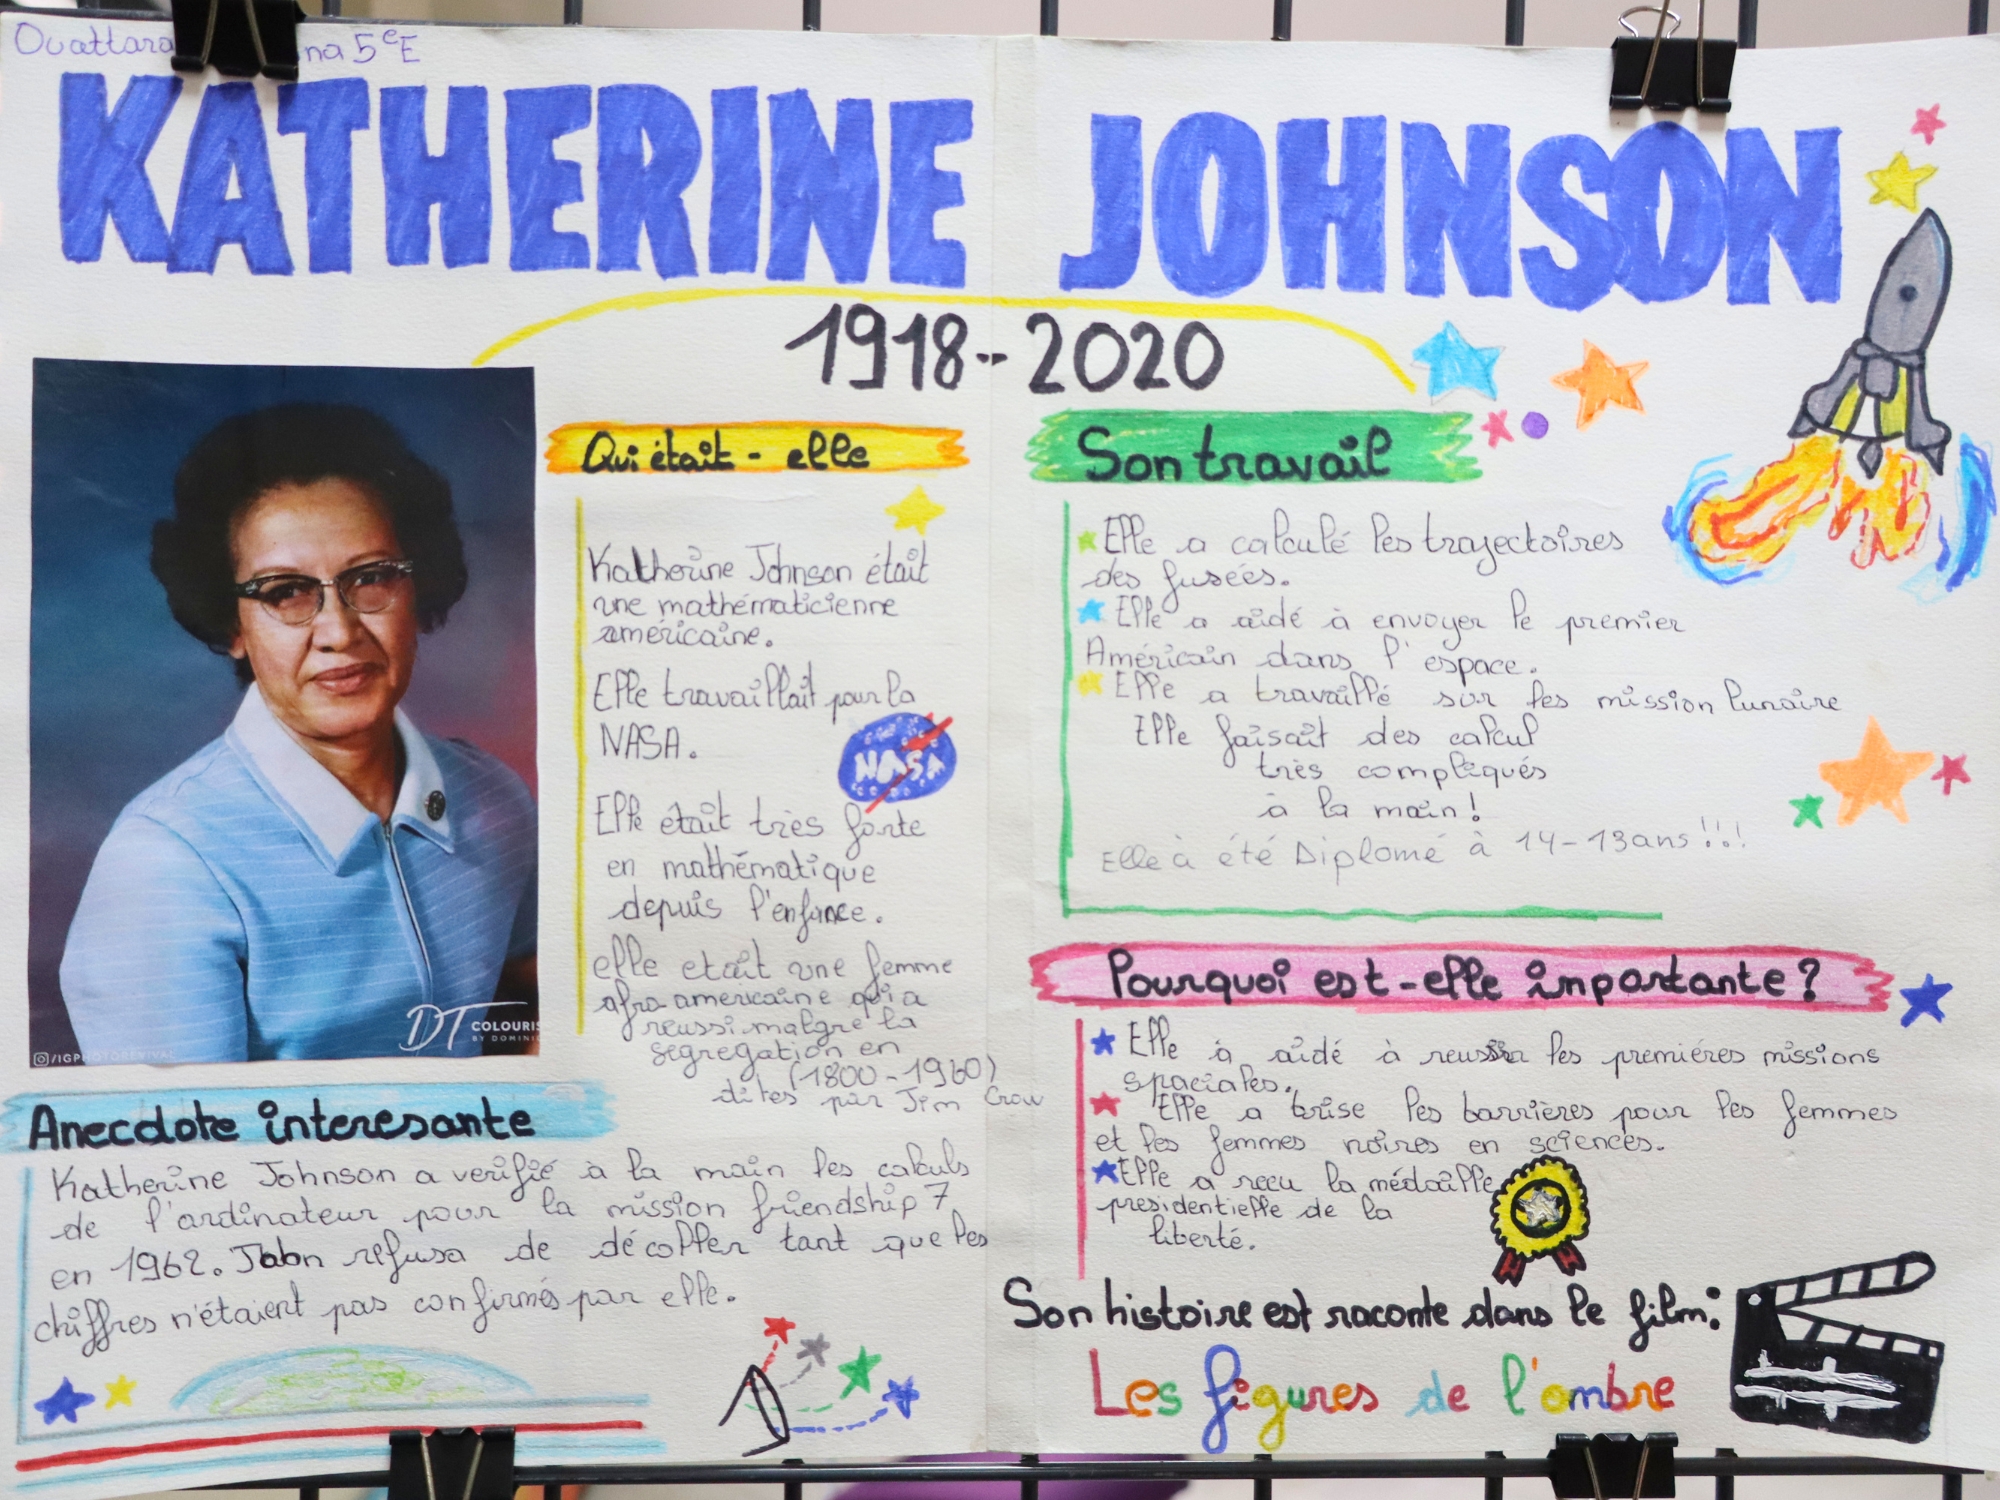 Ouattara
na 5eE
KATHERINE JOHNSON
1918--2020
Qui était-elle
Katherine Johnson était
une mathématicienne
américaine.
Elle travaillait pour la
NASA.
NASA
Elle était très forte
en mathématique
depuis l'enfance.
elle etait une femme
afro americaine qui a
reussi malgre la
segregation en
(1800-1960)
dites par Jim Crow
DT COLOURIS
BY DOMINIC
/IGPHOTOREVIVAL
Anecdote interesante
Katherine Johnson a verifié à la main les calculs
de l'ordinateur pour la mission friendship 7
en 1962. John refusa de décoller tant que les
chiffres n'étaient pas confirmés par elle.
Son travail
Elle a calculé les trajectoires
des fusées.
Elle a aidé à envoyer le premier
Américain dans l'espace.
Elle a travaillé sur les mission lunaire
Elle faisait des calcul
très compliqués
à la main!
Elle à été Diplomé à 14-13ans!!!
Pourquoi est-elle importante?
Elle à aidé à reussir les premiéres missions
spaciales.
Elle a brise les barrières pour les femmes
et les femmes noires en sciences.
Elle a recu la médaille
presidentielle de la
liberté.
Son histoire est raconte dans le film:
Les figures de l'ombre